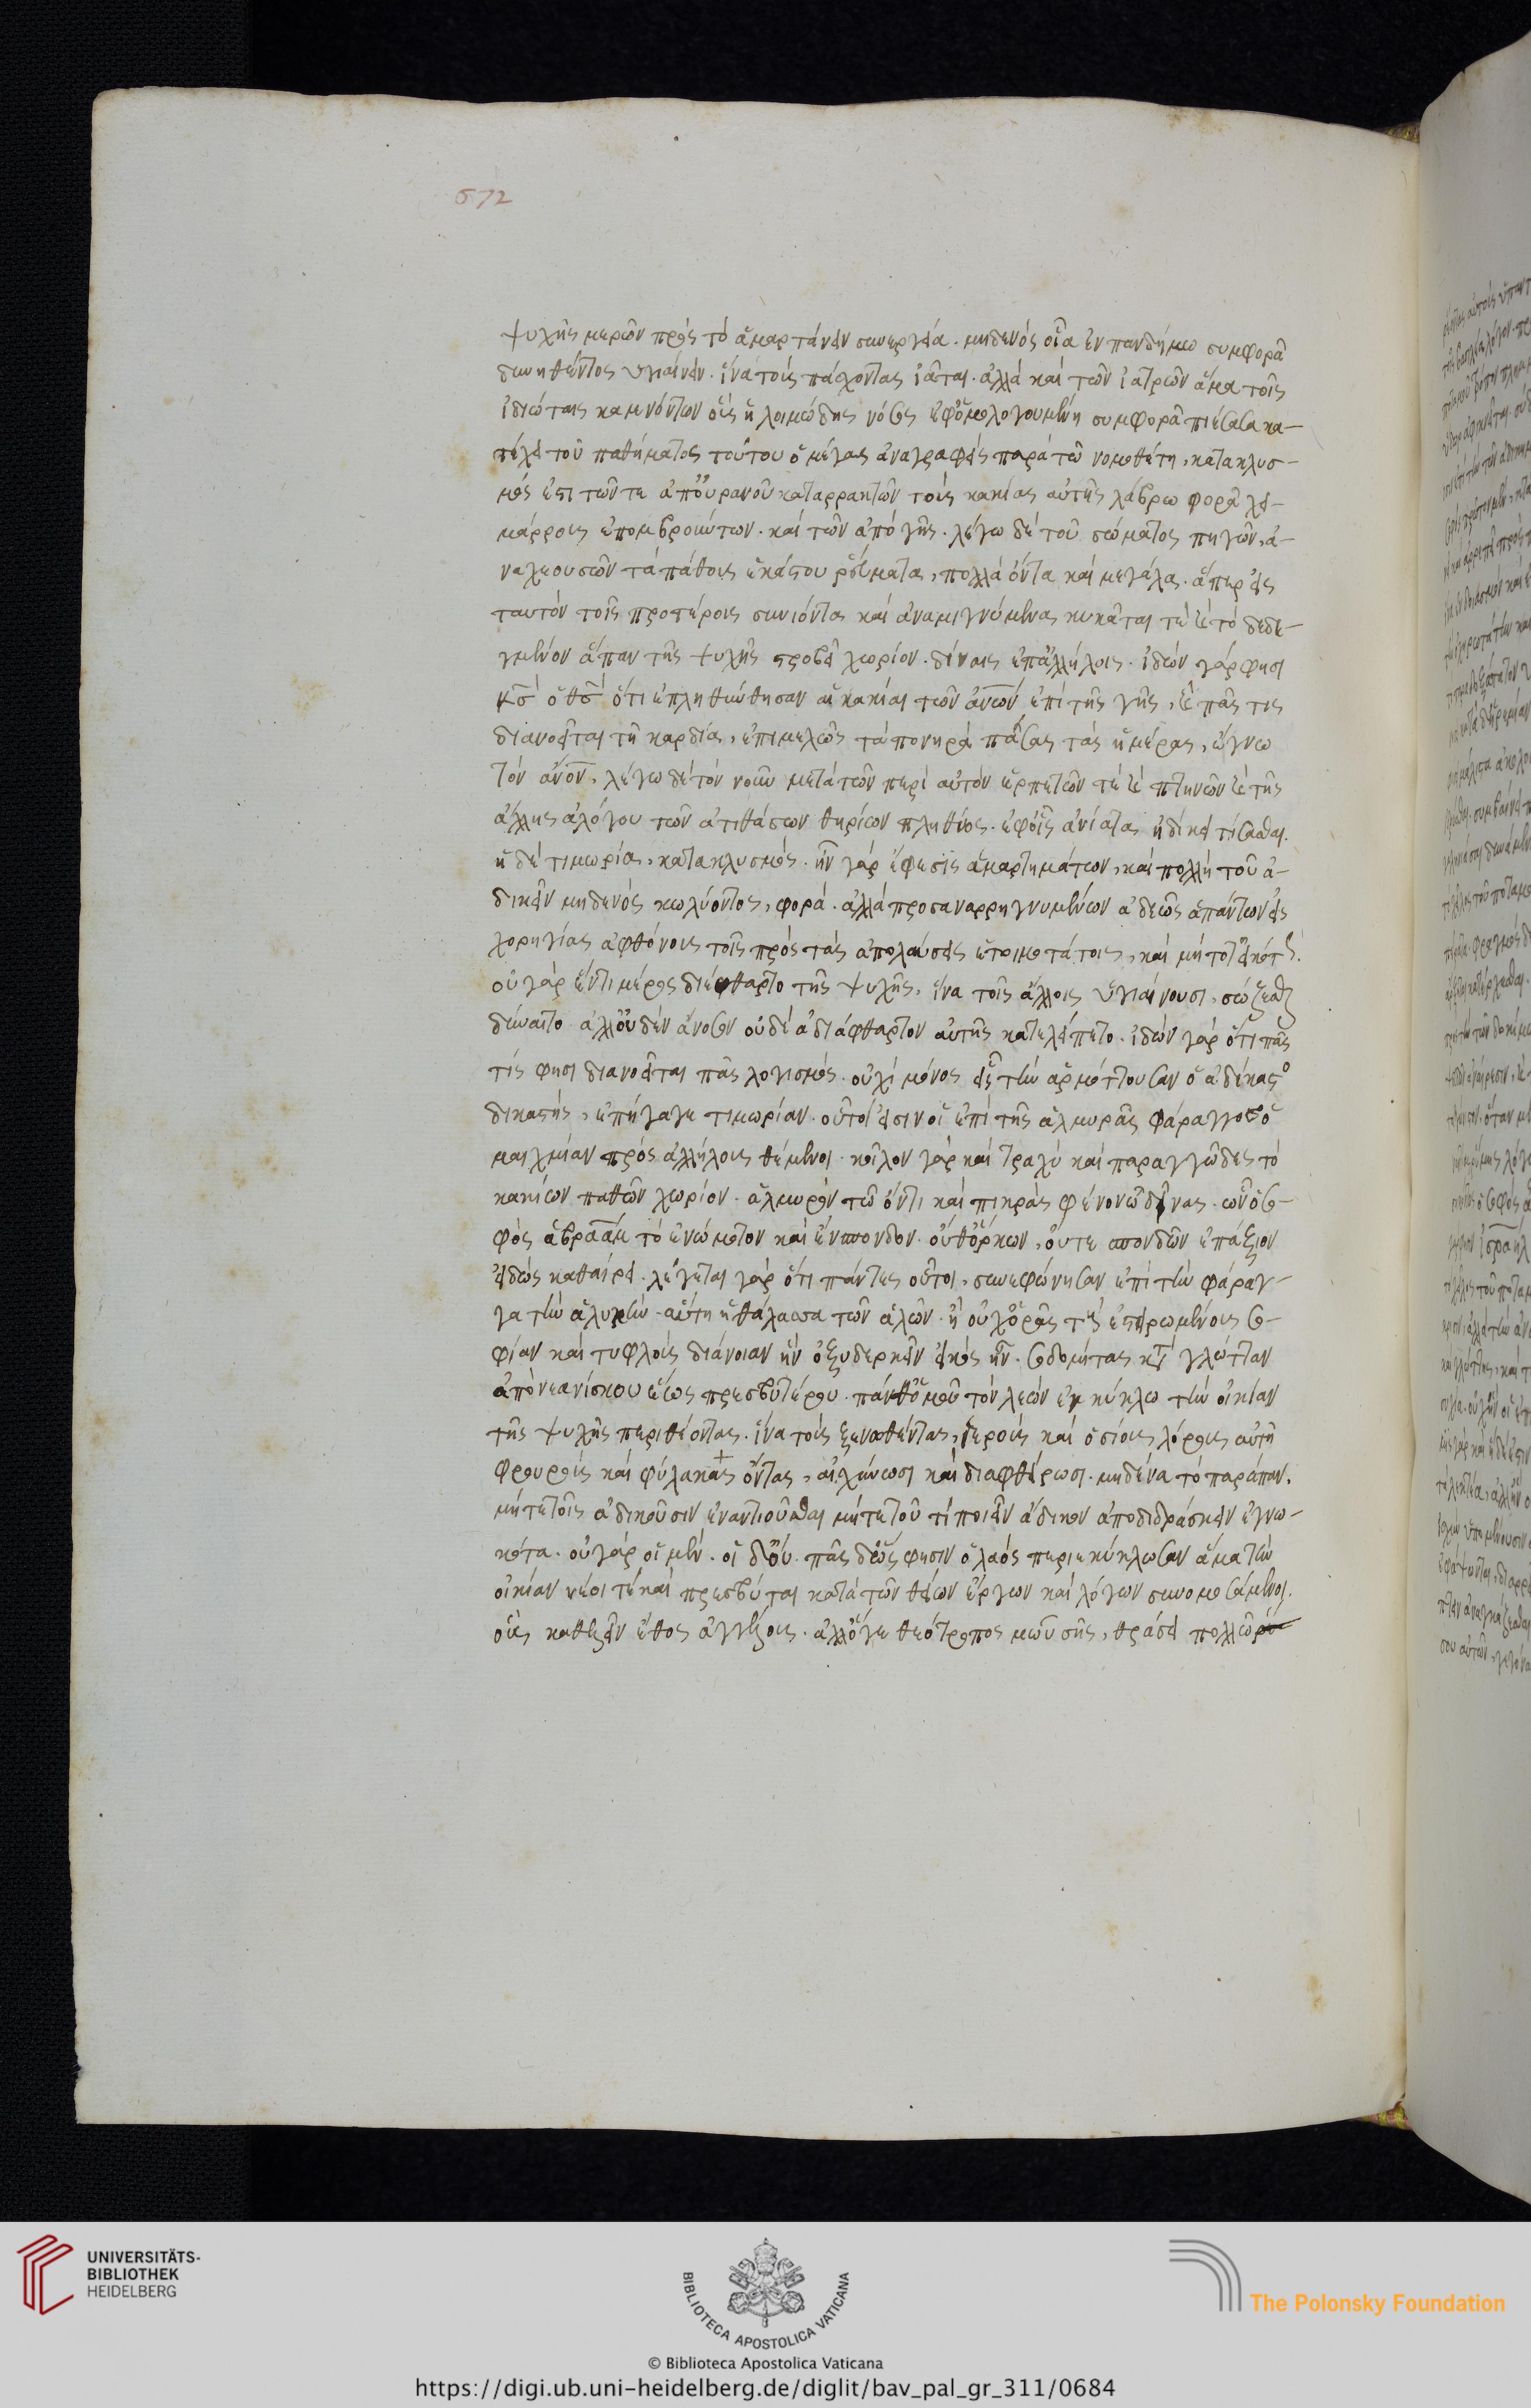 672
ψυχῆς μερῶν πρὸς τὸ ἁμαρτάνειν συνεργεῖα. μηδενὸς οἷα ἐν πανδήμω συμφορᾶ
δυνηθέντος ὑγιαίνειν. ἵνα τοὺς πάσχοντας ἰᾶται. ἀλλὰ καὶ τῶν ἰατρῶν ἅμα τοῖς
ἰδιώταις καμνόντων οὓς ἡ λοιμώδης νόσος ἐφ ὁμολογουμένη συμφορᾶ πιέσασα κα-
τέχει τοῦ παθήματος τούτου ὁ μέγας ἀναγραφεὶς παρὰ τῶ νομοθέτη, κατακλυσ-
μὸς ἐστι τῶν τε ἀπ οὐρανοῦ καταρρακτῶν τοὺς κακίας αὐτῆς λάβρω φορᾶ χει-
μάρρους ἐπομβρούντων. καὶ τῶν ἀπὸ γῆς. λέγω δὲ τοῦ σώματος πηγῶν, ἀ-
ναχεουσῶν τὰ πάθους ἑκάστου ῥεύματα, πολλὰ ὄντα καὶ μεγάλα. ἅπερ εἰς
ταυτὸν τοῖς προτέροις συνιόντα καὶ ἀναμιγνύμενα κυκᾶται τὲ καὶ τὸ δεδε-
γμένον ἅπαν τῆς ψυχῆς στροβεῖ χωρίον. δίναις ἐπαλλήλοις. ἰδὼν γάρ φησι
κς ὁ θς ὅτι ἐπληθύνθησαν αἱ κακίαι τῶν ἀνων ἐπὶ τῆς γῆς, καὶ πᾶς τις
διανοεῖται τῆ καρδία, ἐπιμελῶς τὰ πονηρὰ πάσας τὰς ἡμέρας, ἔγνω
τὸν ἀνον, λέγω δὲ τὸν νοῦν μετὰ τῶν περὶ αὐτὸν ἑρπετῶν τὲ καὶ πτηνῶν καὶ τῆς
ἄλλης ἀλόγου τῶν ἀτιθάσων θηρίων πληθύος. ἐφ οἷς ἀνίατα ἠδίκει τίσασθαι.
ἡ δὲ τιμωρία, κατακλυσμός. ἦν γὰρ ἔφεσις ἁμαρτημάτων, καὶ πολλὴ τοῦ ἀ-
δικεῖν μηδενὸς κωλύοντος, φορά. ἀλλὰ προσαναρρηγνυμένων ἀδεῶς ἁπάντων εἰς
χορηγίας ἀφθόνους τοῖς πρὸς τὰς ἀπολαύσεις ἑτοιμοτάτοις, καὶ μή
οὐ γὰρ ἕν τι μέρος διέφθαρτο τῆς ψυχῆς, ἵνα τοῖς ἄλλοις ὑγιαίνουσι, σώζεσθαι
δύναιτο ἀλλ οὐδὲν ἄνοσον οὐδὲ ἀδιάφθαρτον αὐτῆς κατελείπετο. ἰδὼν γὰρ ὅτι πᾶς
τίς φησι διανοεῖται πᾶς λογισμός. οὐχὶ μόνος εἷς τὴν ἁρμόττουσαν ὁ ἀδέκαστος
δικαστής, ἐπήγαγε τιμωρίαν. οὗτοι εἰσιν οἱ ἐπὶ τῆς ἁλμυρᾶς φάραγγος ὁ
μαιχμίαν πρὸς ἀλλήλους θέμενοι. κοῖλον γὰρ καὶ τραχὺ καὶ παραγγῶδες τὸ
κακιῶν παθῶν χωρίον. ἁλμυρὸν τῶ ὄντι καὶ πικρὰς φένον ὠδῖνας. ὧν ὁ σο-
φὸς ἀβραὰμ τὸ ἐνώμοτον καὶ ἔνσπονδον. οὔθ ὅρκων, οὔτε σπονδῶν ἐπάξιον
εἰδὼς καθαίρει. λέγεται γὰρ ὅτι πάντες οὗτοι, συνεφώνησαν ἐπὶ τὴν φάραγ-
γα τὴν ἁλυκὴν. αὕτη ἡ θάλασσα τῶν ἁλῶν. ἢ οὐχ ὁρᾶς τοὺς ἐστειρωμένους σο-
φίαν καὶ τυφλοὺς διάνοιαν ἣν ὀξυδερκεῖν εἰκὸς ἦν. σοδομίτας κατὰ γλώτταν
ἀπὸ νεανίσκου ἕως πρεσβυτέρου. πάνθ ὁμοῦ τὸν λεὼν ἐν κύκλω τὴν οἰκίαν
τῆς ψυχῆς περιθέοντας. ἵνα τοὺς ξενωθέντας, ἱεροὺς καὶ ὁσίους λόγους αὐτῆ
φρουροὺς καὶ φύλακας ὄντας, αἰσχύνωσι καὶ διαφθείρωσι. μηδένα τὸ παράπαν.
μήτε τοῖς ἀδικοῦσιν ἐναντιοῦσθαι μήτε τοῦ τί ποιεῖν ἄδικον ἀποδιδράσκειν ἐγνω-
κότα. οὐ γὰρ οἱ μὲν. οἱ δ οὔ. πᾶς δ ὥς φησιν ὁ λαὸς περιεκύκλωσαν ἅμα τὴν
οἰκίαν νέοι τὲ καὶ πρεσβύται κατὰ τῶν θείων ἔργων καὶ λόγων συνομοσάμενοι.
οὓς καλεῖν ἔθος ἀγγέλους. ἀλλ ὅγε θεότροπος μωϋσῆς, θράσει πολλῶ ῥέ